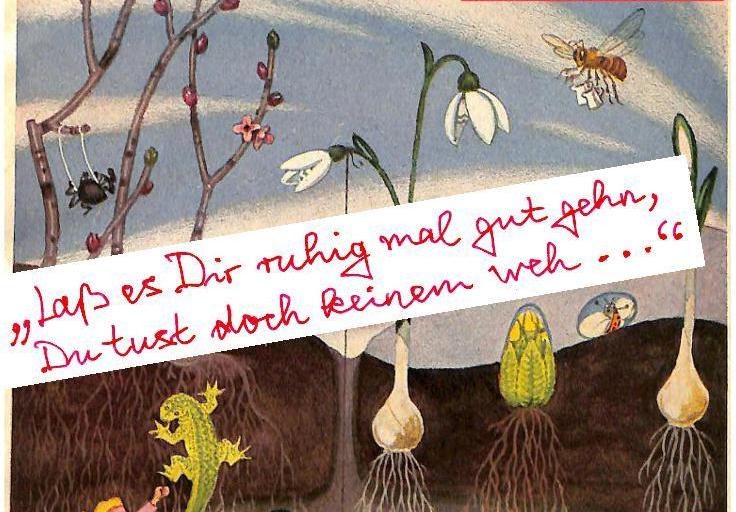 „Laß es Dir ruhig mal gut gehn,
Du tust doch keinem weh ...“